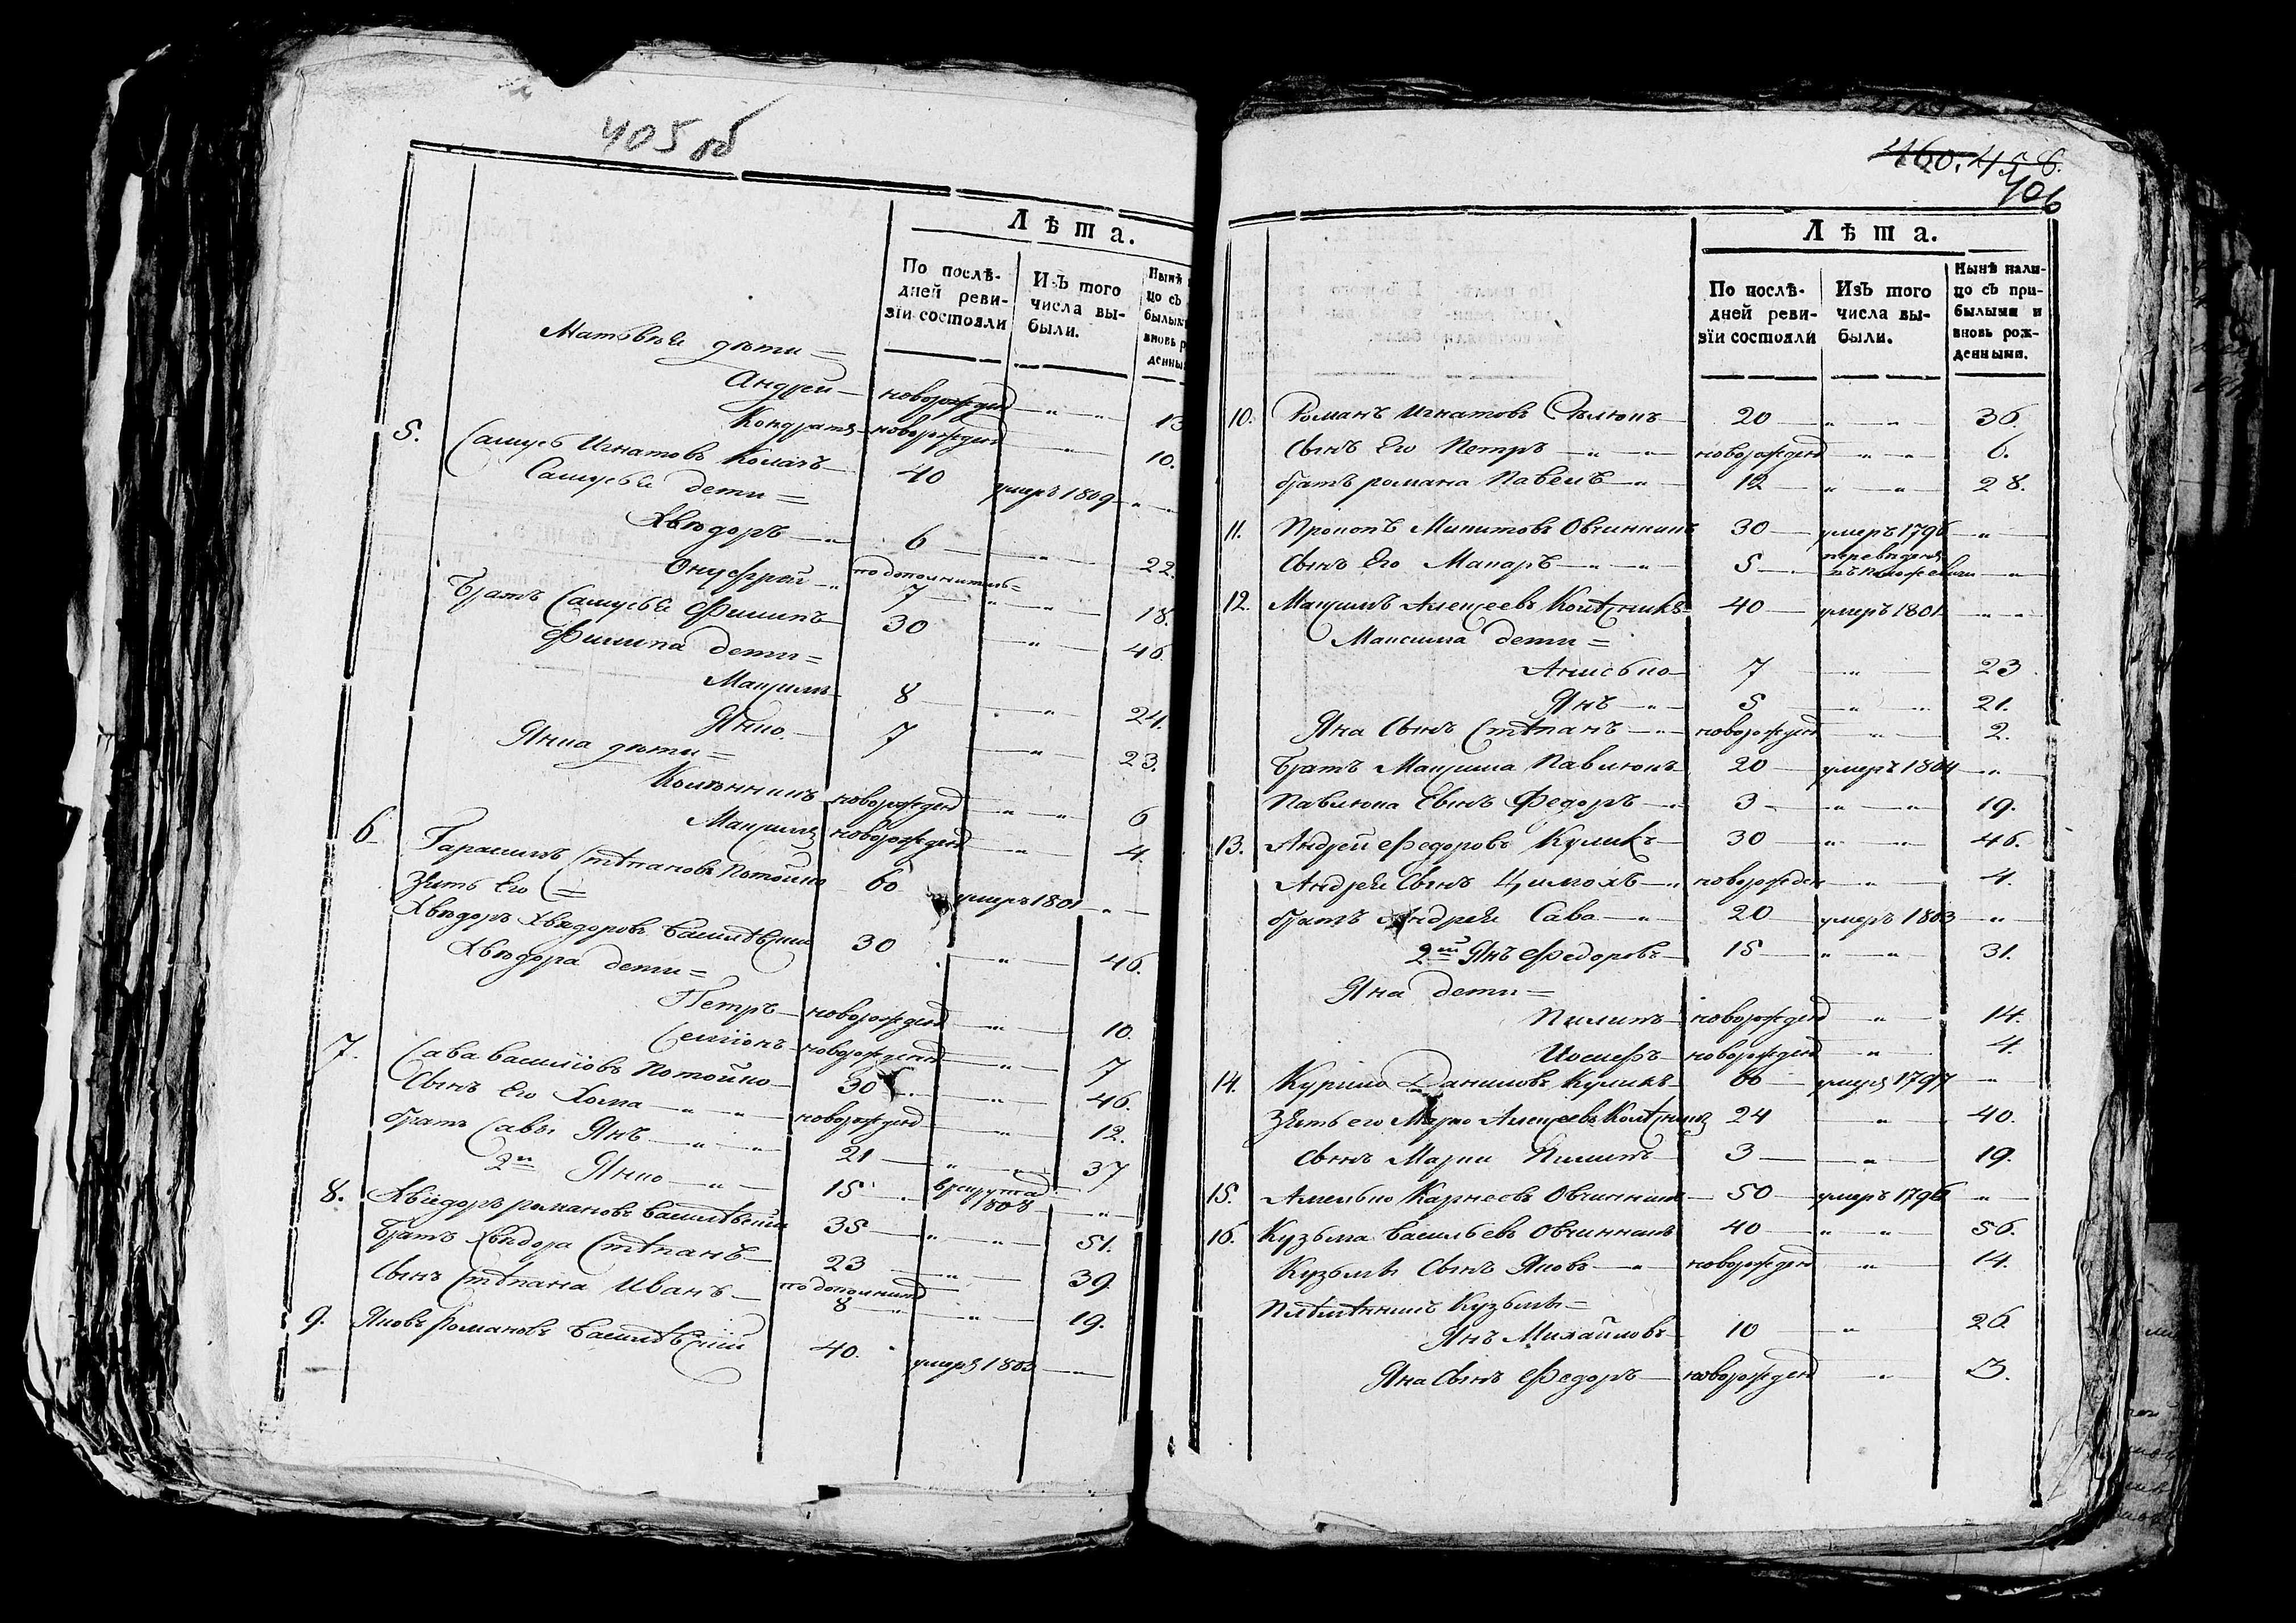 405 об
Лѣта.
По послѣ-
дней реви-
зїи состояли
Изъ того
числа вы-
были.
Нынѣ
цо съ
былым
вновь р
денны
Матвѣя дѣти =
Андрей — новорожден — " — " — 13
Кондратъ — новорожден — " — 10.
5. Самусь Игнатовъ — 40 умеръ 1809 — "
Самуся дети =
Хвядоръ — " 6 — " — 22.
Онуфрей — " по дополнитель= 7 — " — " — 18.
Братъ Самуся Филипъ — 30 — " — 46.
Филипа дети =
Максимъ — 8 — " — 24.
Янко — 7 — " — 23.
Янка дѣти =
новорожден — " — " 6
Максимъ новорожден — " — 4.
6. Гарасимъ Стѣпановъ Потойко — 60 умеръ 1801 — " —
Зять Его =
Хвядоръ Хвядоровъ Василѣвски 30 — " — 46.
Хвядора дети =
Петръ — новорожден — " — 10.
Семіонъ — новорожден — " — 7
7. Сава Василіовъ Потойко — 30 — " — 46.
Сынъ Его Хома — " — " — новорожден — " — 12.
братъ Савы Янъ — " — " 21 — " — 37
2й Янко — " — 15 в рекруты 1808 — "
8. Хвядоръ романовъ Василѣвский 35 — " — " — 51.
Братъ Хвядора Стѣпанъ — 23 — " — 39.
Сынъ Стѣпана Иванъ — по дополнит 8 — " — " — 19.
9. Яковъ Романовъ Василѣвский 40. умеръ 1803 — "
460. 458.
406
Лѣта.
По послѣ-
дней реви-
зїи состояли
Изъ того
числа вы-
были.
Нынѣ нали-
цо съ при-
былыми и
вновь рож-
денными.
10. Романъ Игнатовъ — 20 — " — " — 36.
Сынъ Его Петръ — " — " — новорожден — " — " — 6.
братъ романа Павелъ — " — 12 — " — " — 28.
11. Прокопъ Микитовъ Овчинникъ 30 — умеръ 1796 — "
Сынъ Его Макаръ — " — " — 5 — . переведенъ — "
12. Максимъ Алексеевъ Колѣсникъ — 40 — умеръ 1801 — " — "
Максима дети =
Анисько — 7 — " — 23
Янъ — " — 5 — " — " 21.
Яна Сынъ Стѣпанъ — " — новорожден — " — 2.
Братъ Максима Павлюкъ 20 — умеръ 1804 — " —
Павлюка Сынъ Федоръ — " 3 — " — " — 19.
13. Андрей Федоровъ Куликъ — 30 — " — " — 46.
Андрея Сынъ Цимохъ — " новорожден — " — 4.
братъ Андрея Сава — " — 20 — умеръ 1803 — "
2й Янъ Федоровъ — 15 — " — " — 31.
Яна дети =
Пилипъ — новорожден — " — 14.
Иосифъ — новорожден — " — 4.
14. Курило Даниловъ Куликъ — 60 — умеръ 1797 — "
Зять его Марко Алексеевъ Колѣсникъ 24 — " — 40.
Сынъ Марки Пилипъ 3 — " — 19.
15. Амелько Карнеевъ Овчинникъ — 50 — умеръ 1796 — " —
16. Кузьма Васильевъ Овчинникъ 40 — " — " — 56.
Кузьмы Сынъ Яковъ — " — новорожден — " — 14.
Плѣмѣнникъ Кузьмы =
Янъ Михайловъ — 10 — " — 26
Яна Сынъ Федоръ — новорожден — " — 3.